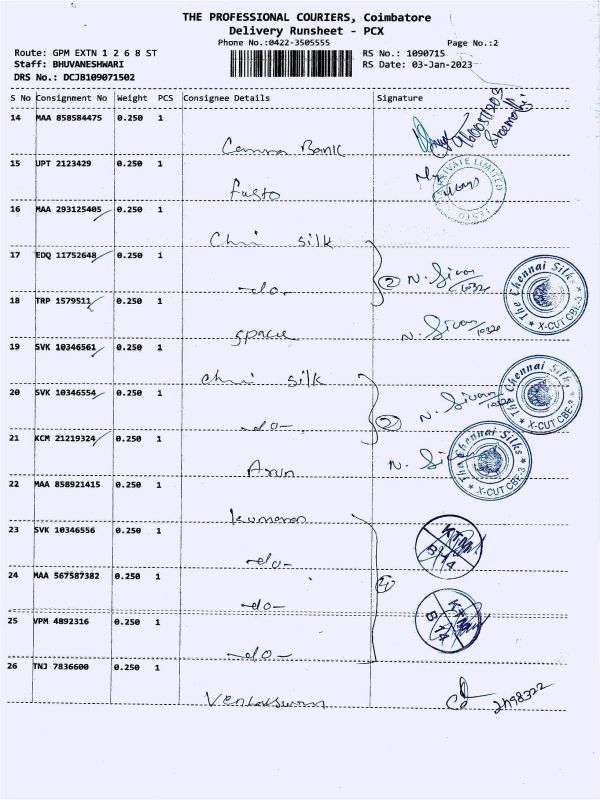 THE PROFESSIONAL COURIERS, Coimbatore
Delivery Runsheet - PCX
Phone No.:0422-3505555
Page No.:2
Route: GPM EXTN 1 2 6 8 ST
RS No.: 1090715
Staff: BHUVANESHWARI
RS Date: 03-Jan-2023
DRS No.: DCJB109071502
S No Consignment No Weight PCS Consignee Details Signature
14 MAA 858584475 0.250 1
Bank
15 UPT 2123429 0.250 1
PRIVATE LIMITED
16 MAA 293125405 0.250 1
silk
17 EDQ 11752648 0.250 1
-do- 2 N. Sivan
The Chennai Silks
X-CUT CBE-3
18 TRP 1579511 0.250 1
space N. Sivan
19 SVK 10346561 0.250 1
silk
20 SVK 10346554 0.250 1
-do- 2 N. Sivan
The Chennai Silks
X-CUT CBE-3
21 KCM 21219324 0.250 1
Arun N.
The Chennai Silks
X-CUT CBE-3
22 MAA 858921415 0.250 1
kumaran
23 SVK 10346556 0.250 1
-do-
24 MAA 567587382 0.250 1
-do- 4
25 VPM 4892316 0.250 1
-do-
26 TNJ 7836600 0.250 1